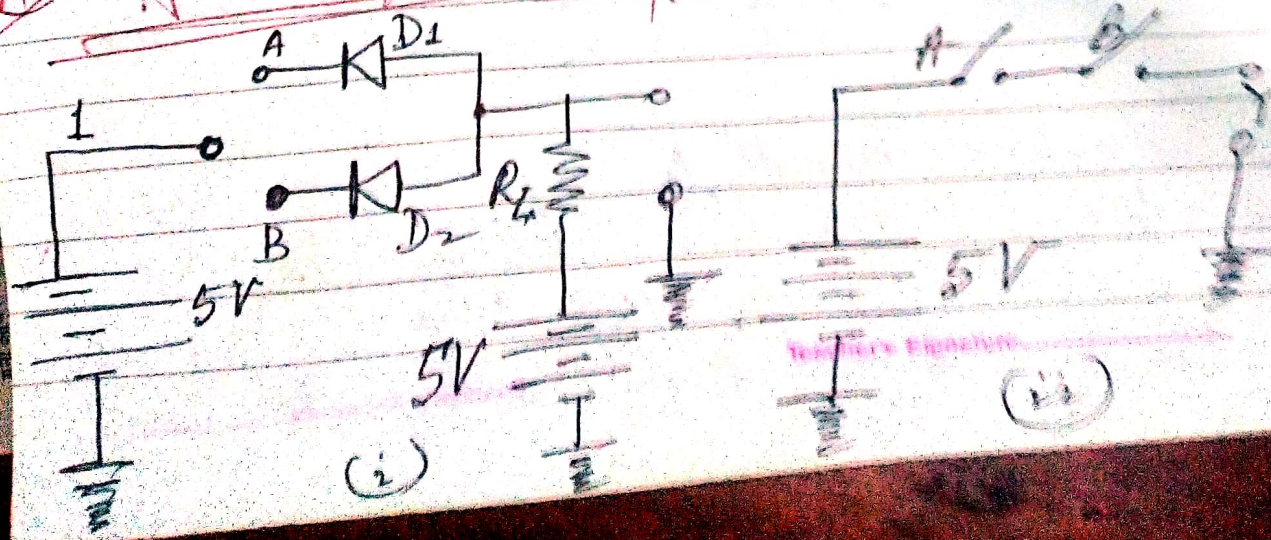 A D1
A B
1
B D2 RL
5V
5V
5V
Teacher's Signature
(i)
(ii)